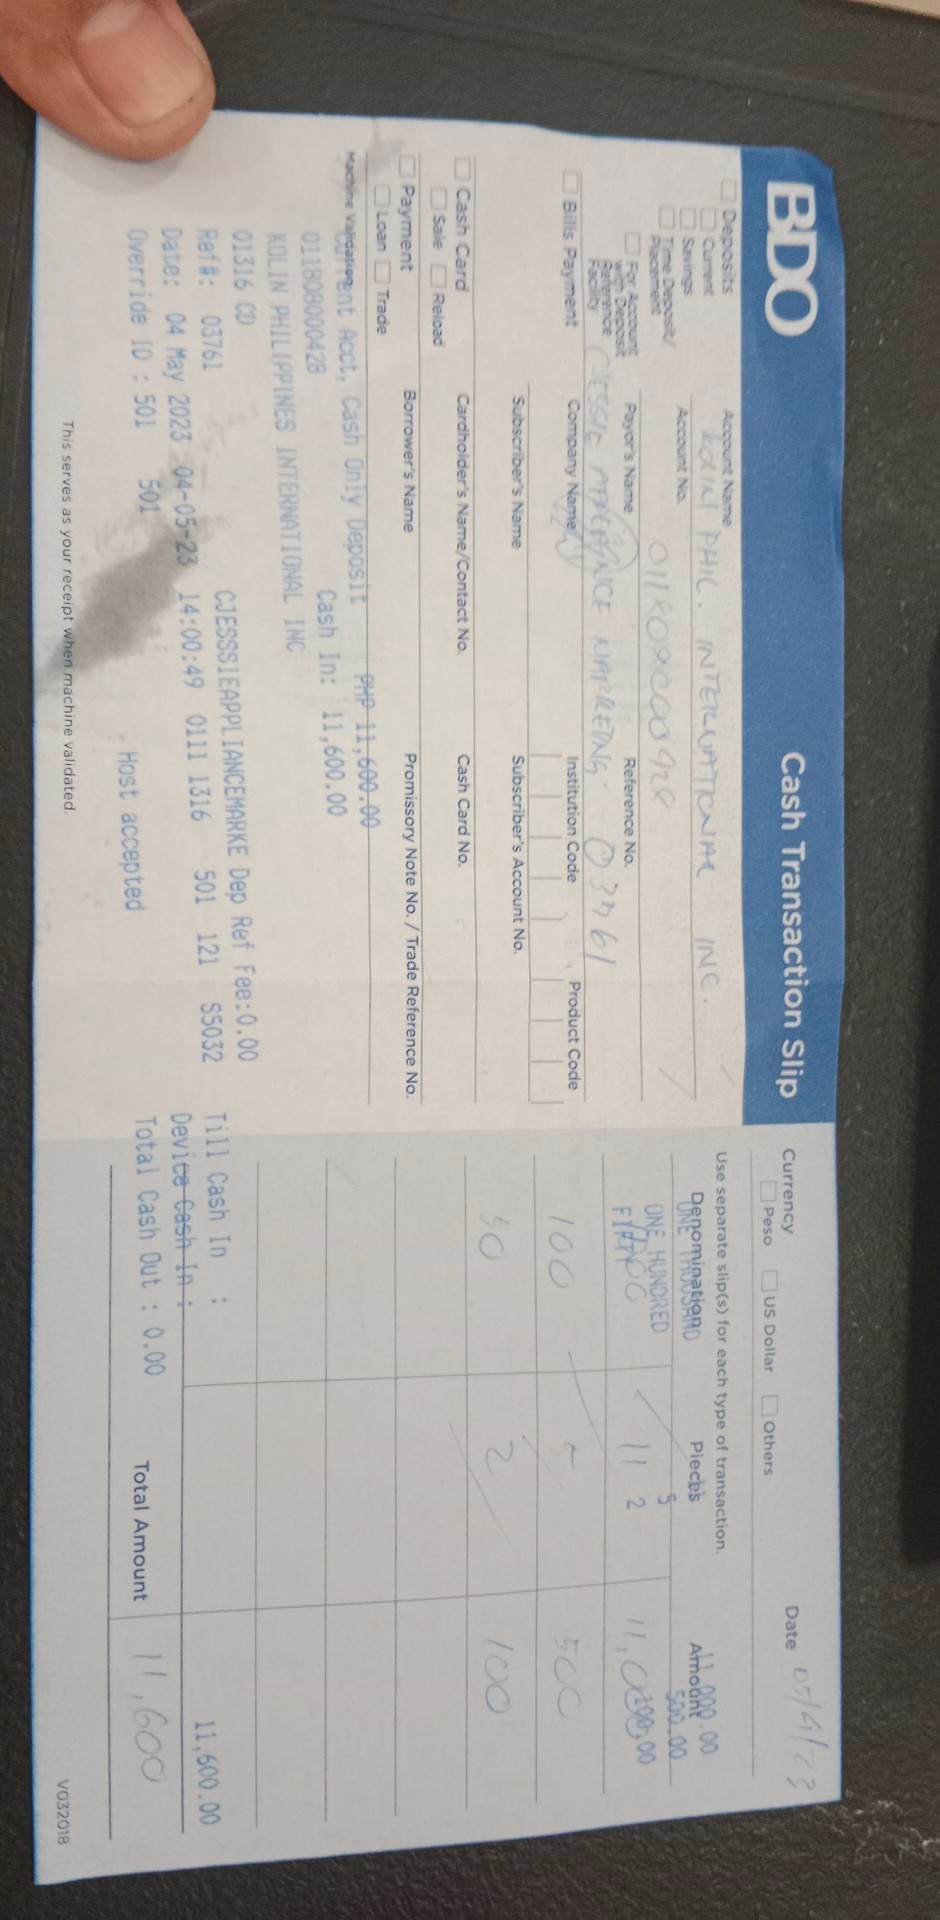 BDO
Cash Transaction Slip
Currency
Peso
US Dollar
Others
Date 05/4/23
Use separate slip(s) for each type of transaction.
Deposits
Current
Savings
Time Deposit/
Placement
For Account
with Deposit
Reference
Facility
Account Name
PHIL. INTERNATIONAL INC.
Account No.
Payor's Name
Reference No.
03761
Bills Payment
Company Name
Institution Code
Product Code
Subscriber's Name
Subscriber's Account No.
Cash Card
Sale
Reload
Cardholder's Name/Contact No.
Cash Card No.
Payment
Loan
Trade
Borrower's Name
Promissory Note No. / Trade Reference No.
Machine Validation
PHP 11,600.00
Current Acct, Cash Only Deposit
011808000428
Cash In: 11,600.00
KOLIN PHILIPPINES INTERNATIONAL INC
01316 CD
CJESSSIEAPPLIANCEMARKE Dep Ref Fee:0.00
Ref#: 03761
Date: 04 May 2023 04-05-23 14:00:49 0111 1316 501 121 S5032
Override ID : 501 501
Host accepted
This serves as your receipt when machine validated.
Denomination
Pieces
Amount
ONE THOUSAND
ONE HUNDRED 5 500.00
FIFTY 2
11
100 5 500
50 2 100
11,600.00
Till Cash In :
Device Cash In :
Total Cash Out : 0.00
Total Amount 11,600
V032018